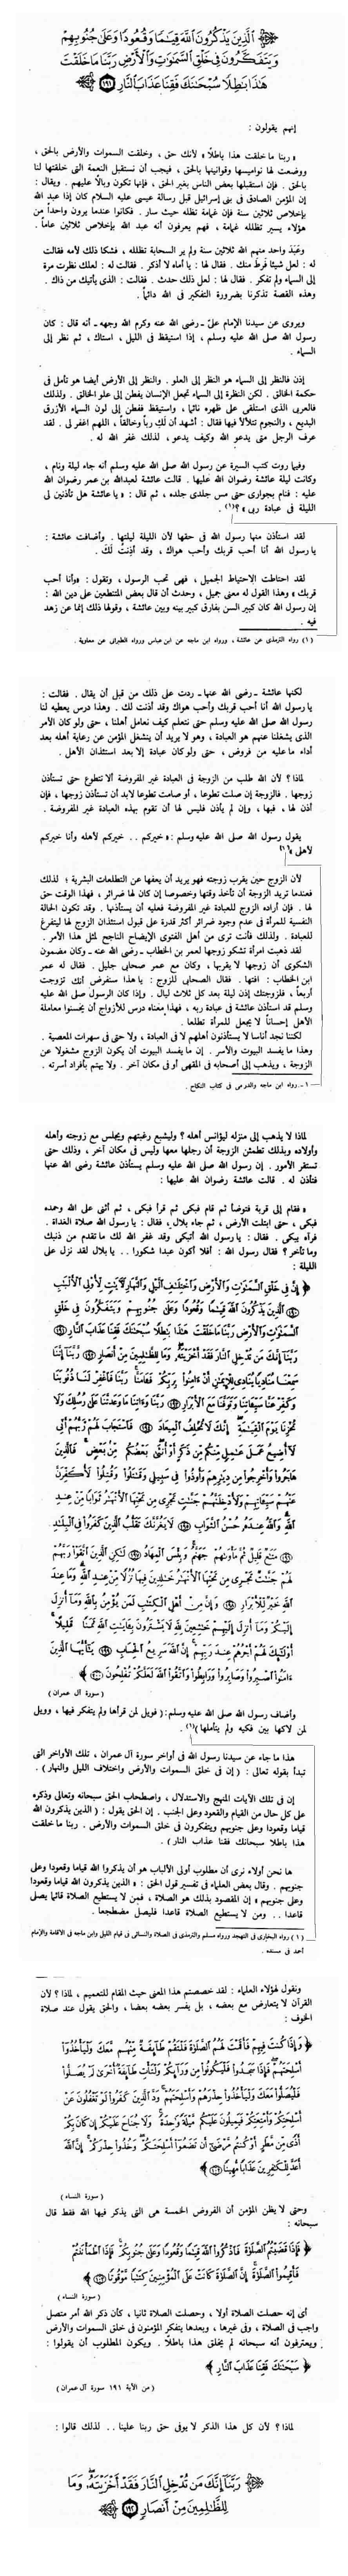 ﴿ ٱلَّذِينَ يَذْكُرُونَ ٱللَّهَ قِيَٰمًا وَقُعُودًا وَعَلَىٰ جُنُوبِهِمْ
وَيَتَفَكَّرُونَ فِى خَلْقِ ٱلسَّمَٰوَٰتِ وَٱلْأَرْضِ رَبَّنَا مَا خَلَقْتَ
هَٰذَا بَٰطِلًا سُبْحَٰنَكَ فَقِنَا عَذَابَ ٱلنَّارِ ١٩١ ﴾
إنهم يقولون :
« ربنا ما خلقت هذا باطلًا » لأنك حق ، وخلقت السموات والأرض بالحق ،
ووضعت لها نواميسها وقوانينها بالحق ، فيجب أن نستقبل النعمة التى خلقتها لنا
بالحق . فإن استقبلها بعض الناس بغير الحق ، فإنها تكون وبالًا عليهم . ويقال :
إن المؤمن الصادق فى بنى إسرائيل قبل رسالة عيسى عليه السلام كان إذا عبد الله
بإخلاص ثلاثين سنة فإن غمامة تظله حيث سار . فكانوا عندما يرون واحداً من
هؤلاء يسير تظلله غمامة ، فهم يعرفون أنه عبد الله بإخلاص ثلاثين عاماً .
وعَبَدَ واحد منهم الله ثلاثين سنة ولم ير السحابة تظلله ، فشكا ذلك لأمه فقالت
له : لعل شيئا فرط منك . فقال لها : يا أماه لا أذكر . فقالت له : لعلك نظرت مرة
إلى السماء ولم تفكر . فقال لها : لعل ذلك حدث . فقالت : الذى يأتيك من ذاك .
وهذه القصة تذكرنا بضرورة التفكير فى الله دائماً .
ويروى عن سيدنا الإمام علىّ ـ رضى الله عنه وكرم الله وجهه ـ أنه قال : كان
رسول الله صلى الله عليه وسلم ، إذا استيقظ فى الليل ، استاك ، ثم نظر إلى
السماء .
إذن فالنظر إلى السماء هو النظر إلى العلو . والنظر إلى الأرض أيضا هو تأمل فى
حكمة الخالق . لكن النظرة إلى السماء تجعل الإنسان يفطن إلى علو الخالق . ولذلك
فالعربى الذى استلقى على ظهره نائما ، واستيقظ ففطن إلى لون السماء الأزرق
البديع ، والنجوم تتلألأ فيها فقال : أشهد أن لك رباً وخالقاً ، اللهم اغفر لى . لقد
عرف الرجل متى يدعو الله وكيف يدعو ، لذلك غفر الله له .
وفيما روت كتب السيرة عن رسول الله صلى الله عليه وسلم أنه جاء ليلة ونام ،
وكانت ليلة عائشة رضوان الله عليها . قالت عائشة لعبدالله بن عمر رضوان الله
عليه : فنام بجوارى حتى مس جلدى جلده ، ثم قال : « يا عائشة هل تأذنين لى
الليلة فى عبادة ربى » ؟(١) .
لقد استأذن منها رسول الله فى حقها لأن الليلة ليلتها . وأضافت عائشة :
يا رسول الله أنا أحب قربك وأحب هواك ، وقد أذِنتُ لك .
لقد احتاطت الاحتياط الجميل ، فهى تحب الرسول ، وتقول : «وأنا أحب
قربك » وهذا القول له معنى جميل ، وحدث أن قال بعض المتنطعين على دين الله :
إن رسول الله كان كبير السن بفارق كبير بينه وبين عائشة ، وقولها ذلك إنما عن زهد
فيه .
(١) رواه الترمذى عن عائشة ، ورواه ابن ماجه عن ابن عباس ورواه الطبرانى عن معاوية .
لكنها عائشة ـ رضى الله عنها ـ ردت على ذلك من قبل أن يقال . فقالت :
يا رسول الله أنا أحب قربك وأحب هواك وقد أذنت لك . وهذا درس يعطيه لنا
رسول الله صلى الله عليه وسلم حتى نتعلم كيف نعامل أهلنا ، حتى ولو كان الأمر
الذى يشغلنا عنهم هو العبادة ، وهو لا يريد أن ينشغل المؤمن عن رعاية أهله بعد
أداء ما عليه من فروض ، حتى ولو كان عبادة إلا بعد استئذان الأهل .
لماذا ؟ لأن الله طلب من الزوجة فى العبادة غير المفروضة ألا تتطوع حتى تستأذن
زوجها . فالزوجة إن صلت تطوعا ، أو صامت تطوعا لابد أن تستأذن زوجها ، فإن
أذن لها ، فبها ، وإن لم يأذن فليس لها أن تقوم بهذه العبادة غير المفروضة .
يقول رسول الله صلى الله عليه وسلم : «خيركم .. خيركم لأهله وأنا خيركم
لأهلى »(١)
لأن الزوج حين يقرب زوجته فهو يريد أن يعفها عن التطلعات البشرية ؛ لذلك
فعندما تريد الزوجة أن تأخذ وقتها وخصوصا إن كان لها ضرائر ، فهذا الوقت حق
لها . فإن أراده الزوج للعبادة غير المفروضة فعليه أن يستأذنها . وقد تكون الحالة
النفسية للمرأة فى عدم وجود ضرائر أكثر قدرة على قبول استئذان الزوج لها ليتفرغ
للعبادة . ولذلك فأنت ترى من أهل الفتوى الإيضاح الناجح لمثل هذا الأمر .
لقد ذهبت امرأة تشكو زوجها لعمر بن الخطاب ـ رضى الله عنه ـ وكان مضمون
الشكوى أن زوجها لا يقربها ، وكان مع عمر صحابى جليل . فقال له عمر
ابن الخطاب : افتها . فقال الصحابى للزوج : يا هذا سنفرض أنك تزوجت
أربعاً ، فلزوجتك إذن ليلة بعد كل ثلاث ليال . وإذا كان الرسول صلى الله عليه
وسلم قد استأذن عائشة فى عبادة ربه ، فهذا معناه درس للأزواج أن يحسنوا معاملة
الأهل إحساناً لا يجعل للمرأة تطلعا .
لكننا نجد أناسا لا يستأذنون أهلهم لا فى العبادة ، ولا حتى فى سهرات المعصية .
وهذا ما يفسد البيوت والأسر . إن ما يفسد البيوت أن يكون الزوج مشغولا عن
الزوجة ، ويذهب إلى أصحابه فى المقهى أو فى مكان آخر . ولا يهتم بأفراد أسرته .
١ ـ رواه ابن ماجه والدرمى فى كتاب النكاح .
لماذا لا يذهب إلى منزله ليؤانس أهله ؟ وليشبع رغبتهم ويجلس مع زوجته وأهله
وأولاده وبذلك تطمئن الزوجة أن رجلها معها وليس فى مكان آخر ، وذلك حتى
تستقر الأمور . إن رسول الله صلى الله عليه وسلم يستأذن عائشة رضى الله عنها
فتأذن له . قالت عائشة رضوان الله عليها :
« فقام إلى قربة فتوضأ ثم قام فبكى ثم قرأ فبكى ، ثم أثنى على الله وحمده
فبكى ، حتى ابتلت الأرض ، ثم جاء بلال ، فقال : يا رسول الله صلاة الغداة .
فرآه يبكى . فقال : يا رسول الله أتبكى وقد غفر الله لك ما تقدم من ذنبك
وما تأخر ؟ فقال رسول الله : أفلا أكون عبدا شكورا .. يا بلال لقد نزل على
الليلة :
﴿ إِنَّ فِى خَلْقِ ٱلسَّمَٰوَٰتِ وَٱلْأَرْضِ وَٱخْتِلَٰفِ ٱلَّيْلِ وَٱلنَّهَارِ لَءَايَٰتٍ لِّأُو۟لِى ٱلْأَلْبَٰبِ
١٩٠ ٱلَّذِينَ يَذْكُرُونَ ٱللَّهَ قِيَٰمًا وَقُعُودًا وَعَلَىٰ جُنُوبِهِمْ وَيَتَفَكَّرُونَ فِى خَلْقِ
ٱلسَّمَٰوَٰتِ وَٱلْأَرْضِ رَبَّنَا مَا خَلَقْتَ هَٰذَا بَٰطِلًا سُبْحَٰنَكَ فَقِنَا عَذَابَ ٱلنَّارِ ١٩١
رَبَّنَآ إِنَّكَ مَن تُدْخِلِ ٱلنَّارَ فَقَدْ أَخْزَيْتَهُۥ وَمَا لِلظَّٰلِمِينَ مِنْ أَنصَارٍ ١٩٢ رَّبَّنَآ إِنَّنَا
سَمِعْنَا مُنَادِيًا يُنَادِى لِلْإِيمَٰنِ أَنْ ءَامِنُوا۟ بِرَبِّكُمْ فَـَٔامَنَّا رَبَّنَا فَٱغْفِرْ لَنَا ذُنُوبَنَا
وَكَفِّرْ عَنَّا سَيِّـَٔاتِنَا وَتَوَفَّنَا مَعَ ٱلْأَبْرَارِ ١٩٣ رَبَّنَا وَءَاتِنَا مَا وَعَدتَّنَا عَلَىٰ رُسُلِكَ وَلَا
تُخْزِنَا يَوْمَ ٱلْقِيَٰمَةِ إِنَّكَ لَا تُخْلِفُ ٱلْمِيعَادَ ١٩٤ فَٱسْتَجَابَ لَهُمْ رَبُّهُمْ أَنِّى
لَآ أُضِيعُ عَمَلَ عَٰمِلٍ مِّنكُم مِّن ذَكَرٍ أَوْ أُنثَىٰ بَعْضُكُم مِّنۢ بَعْضٍ فَٱلَّذِينَ
هَاجَرُوا۟ وَأُخْرِجُوا۟ مِن دِيَٰرِهِمْ وَأُوذُوا۟ فِى سَبِيلِى وَقَٰتَلُوا۟ وَقُتِلُوا۟ لَأُكَفِّرَنَّ
عَنْهُمْ سَيِّـَٔاتِهِمْ وَلَأُدْخِلَنَّهُمْ جَنَّٰتٍ تَجْرِى مِن تَحْتِهَا ٱلْأَنْهَٰرُ ثَوَابًا مِّنْ عِندِ
ٱللَّهِ وَٱللَّهُ عِندَهُۥ حُسْنُ ٱلثَّوَابِ ١٩٥ لَا يَغُرَّنَّكَ تَقَلُّبُ ٱلَّذِينَ كَفَرُوا۟ فِى ٱلْبِلَٰدِ
١٩٦ مَتَٰعٌ قَلِيلٌ ثُمَّ مَأْوَىٰهُمْ جَهَنَّمُ وَبِئْسَ ٱلْمِهَادُ ١٩٧ لَٰكِنِ ٱلَّذِينَ ٱتَّقَوْا۟ رَبَّهُمْ
لَهُمْ جَنَّٰتٌ تَجْرِى مِن تَحْتِهَا ٱلْأَنْهَٰرُ خَٰلِدِينَ فِيهَا نُزُلًا مِّنْ عِندِ ٱللَّهِ وَمَا عِندَ
ٱللَّهِ خَيْرٌ لِّلْأَبْرَارِ ١٩٨ وَإِنَّ مِنْ أَهْلِ ٱلْكِتَٰبِ لَمَن يُؤْمِنُ بِٱللَّهِ وَمَآ أُنزِلَ
إِلَيْكُمْ وَمَآ أُنزِلَ إِلَيْهِمْ خَٰشِعِينَ لِلَّهِ لَا يَشْتَرُونَ بِـَٔايَٰتِ ٱللَّهِ ثَمَنًا قَلِيلًا
أُو۟لَٰٓئِكَ لَهُمْ أَجْرُهُمْ عِندَ رَبِّهِمْ إِنَّ ٱللَّهَ سَرِيعُ ٱلْحِسَابِ ١٩٩ يَٰٓأَيُّهَا ٱلَّذِينَ
ءَامَنُوا۟ ٱصْبِرُوا۟ وَصَابِرُوا۟ وَرَابِطُوا۟ وَٱتَّقُوا۟ ٱللَّهَ لَعَلَّكُمْ تُفْلِحُونَ ٢٠٠ ﴾
( سورة آل عمران )
وأضاف رسول الله صلى الله عليه وسلم : ( فويل لمن قرأها ولم يتفكر فيها ، وويل
لمن لاكها بين فكيه ولم يتأملها )(١) .
هذا ما جاء عن سيدنا رسول الله فى أواخر سورة آل عمران ، تلك الأواخر التى
تبدأ بقوله تعالى : ( إن فى خلق السموات والأرض واختلاف الليل والنهار ) .
إن فى تلك الآيات المنهج والاستدلال ، واصطحاب الحق سبحانه وتعالى وذكره
على كل حال من القيام والقعود وعلى الجنب . إن الحق يقول : ( الذين يذكرون الله
قياما وقعودا وعلى جنوبهم ويتفكرون فى خلق السموات والأرض . ربنا ما خلقت
هذا باطلا سبحانك فقنا عذاب النار ) .
ها نحن أولاء نرى أن مطلوب أولى الألباب هو أن يذكروا الله قياما وقعودا وعلى
جنوبهم . وقال بعض العلماء فى تفسير قول الحق : « الذين يذكرون الله قياما وقعودا
وعلى جنوبهم » إن المقصود بذلك هو الصلاة ، فمن لا يستطيع الصلاة قائما يصلى
قاعدا .. ومن لا يستطيع الصلاة قاعدا فليصل مضطجعا .
(١) رواه البخارى فى التهجد ورواه مسلم والترمذى فى الصلاة والنسائى فى قيام الليل وابن ماجه فى الاقامة والإمام
أحمد فى مسنده .
ونقول لهؤلاء العلماء : لقد خصصتم هذا المعنى حيث المقام للتعميم ، لماذا ؟ لأن
القرآن لا يتعارض مع بعضه ، بل يفسر بعضه بعضا ، والحق يقول عند صلاة
الخوف :
﴿ وَإِذَا كُنتَ فِيهِمْ فَأَقَمْتَ لَهُمُ ٱلصَّلَوٰةَ فَلْتَقُمْ طَآئِفَةٌ مِّنْهُم مَّعَكَ وَلْيَأْخُذُوٓا۟
أَسْلِحَتَهُمْ فَإِذَا سَجَدُوا۟ فَلْيَكُونُوا۟ مِن وَرَآئِكُمْ وَلْتَأْتِ طَآئِفَةٌ أُخْرَىٰ لَمْ يُصَلُّوا۟
فَلْيُصَلُّوا۟ مَعَكَ وَلْيَأْخُذُوا۟ حِذْرَهُمْ وَأَسْلِحَتَهُمْ وَدَّ ٱلَّذِينَ كَفَرُوا۟ لَوْ تَغْفُلُونَ عَنْ
أَسْلِحَتِكُمْ وَأَمْتِعَتِكُمْ فَيَمِيلُونَ عَلَيْكُم مَّيْلَةً وَٰحِدَةً وَلَا جُنَاحَ عَلَيْكُمْ إِن كَانَ بِكُمْ
أَذًى مِّن مَّطَرٍ أَوْ كُنتُم مَّرْضَىٰٓ أَن تَضَعُوٓا۟ أَسْلِحَتَكُمْ وَخُذُوا۟ حِذْرَكُمْ إِنَّ ٱللَّهَ
أَعَدَّ لِلْكَٰفِرِينَ عَذَابًا مُّهِينًا ١٠٢ ﴾
( سورة النساء )
وحتى لا يظن المؤمن أن الفروض الخمسة هى التى يذكر فيها الله فقط قال
سبحانه :
﴿ فَإِذَا قَضَيْتُمُ ٱلصَّلَوٰةَ فَٱذْكُرُوا۟ ٱللَّهَ قِيَٰمًا وَقُعُودًا وَعَلَىٰ جُنُوبِكُمْ فَإِذَا ٱطْمَأْنَنتُمْ
فَأَقِيمُوا۟ ٱلصَّلَوٰةَ إِنَّ ٱلصَّلَوٰةَ كَانَتْ عَلَى ٱلْمُؤْمِنِينَ كِتَٰبًا مَّوْقُوتًا ١٠٣ ﴾
( سورة النساء )
أى إنه حصلت الصلاة أولا ، وحصلت الصلاة ثانيا ، كأن ذكر الله أمر متصل
واجب فى الصلاة ، وفى غيرها ، وبعدها يتفكر المؤمنون فى خلق السموات والأرض
ويعترفون أنه سبحانه لم يخلق هذا باطلًا . ويكون المطلوب أن يقولوا :
﴿ سُبْحَٰنَكَ فَقِنَا عَذَابَ ٱلنَّارِ ﴾
( من الآية ١٩١ سورة آل عمران )
لماذا ؟ لأن كل هذا الذكر لا يوفى حق ربنا علينا .. لذلك قالوا :
﴿ رَبَّنَآ إِنَّكَ مَن تُدْخِلِ ٱلنَّارَ فَقَدْ أَخْزَيْتَهُۥ وَمَا
لِلظَّٰلِمِينَ مِنْ أَنصَارٍ ١٩٢ ﴾